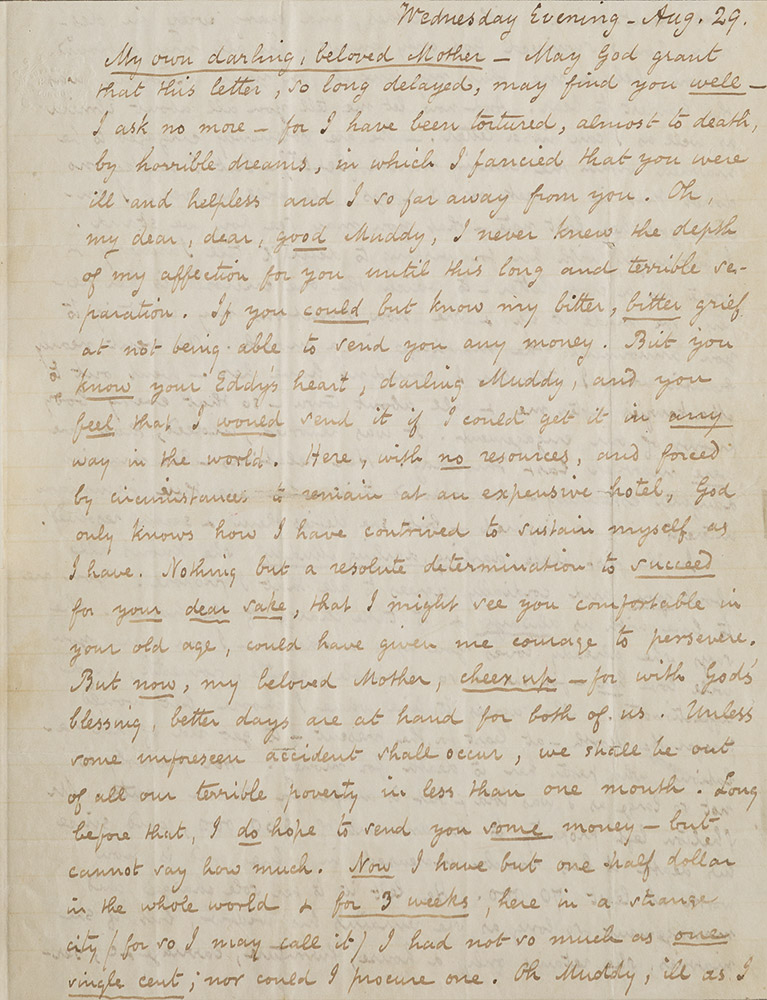 Wednesday Evening - Aug. 29.
My own darling, beloved Mother — May God grant
that this letter, so long delayed, may find you well —
I ask no more — for I have been tortured, almost to death,
by horrible dreams, in which I fancied that you were
ill and helpless and I so far away from you. Oh,
my dear, dear, good Muddy, I never knew the depth
of my affection for you until this long and terrible se-
paration. If you could but know my bitter, bitter grief
at not being able to send you any money. But you
know your Eddy's heart, darling Muddy, and you
feel that I would send it if I could get it in any
way in the world. Here, with no resources, and forced
by circumstances to remain at an expensive hotel, God
only knows how I have contrived to sustain myself as
I have. Nothing but a resolute determination to succeed
for your dear sake, that I might see you comfortable in
your old age, could have given me courage to persevere.
But now, my beloved Mother, cheer up — for with God's
blessing, better days are at hand for both of us. Unless
some unforeseen accident shall occur, we shall be out
of all our terrible poverty in less than one month. Long
before that, I do hope to send you some money — but
cannot say how much. Now I have but one half dollar
in the whole world & for 3 weeks, here in a strange
city (for so I may call it) I had not so much as one
single cent; nor could I procure one. Oh Muddy, ill as I